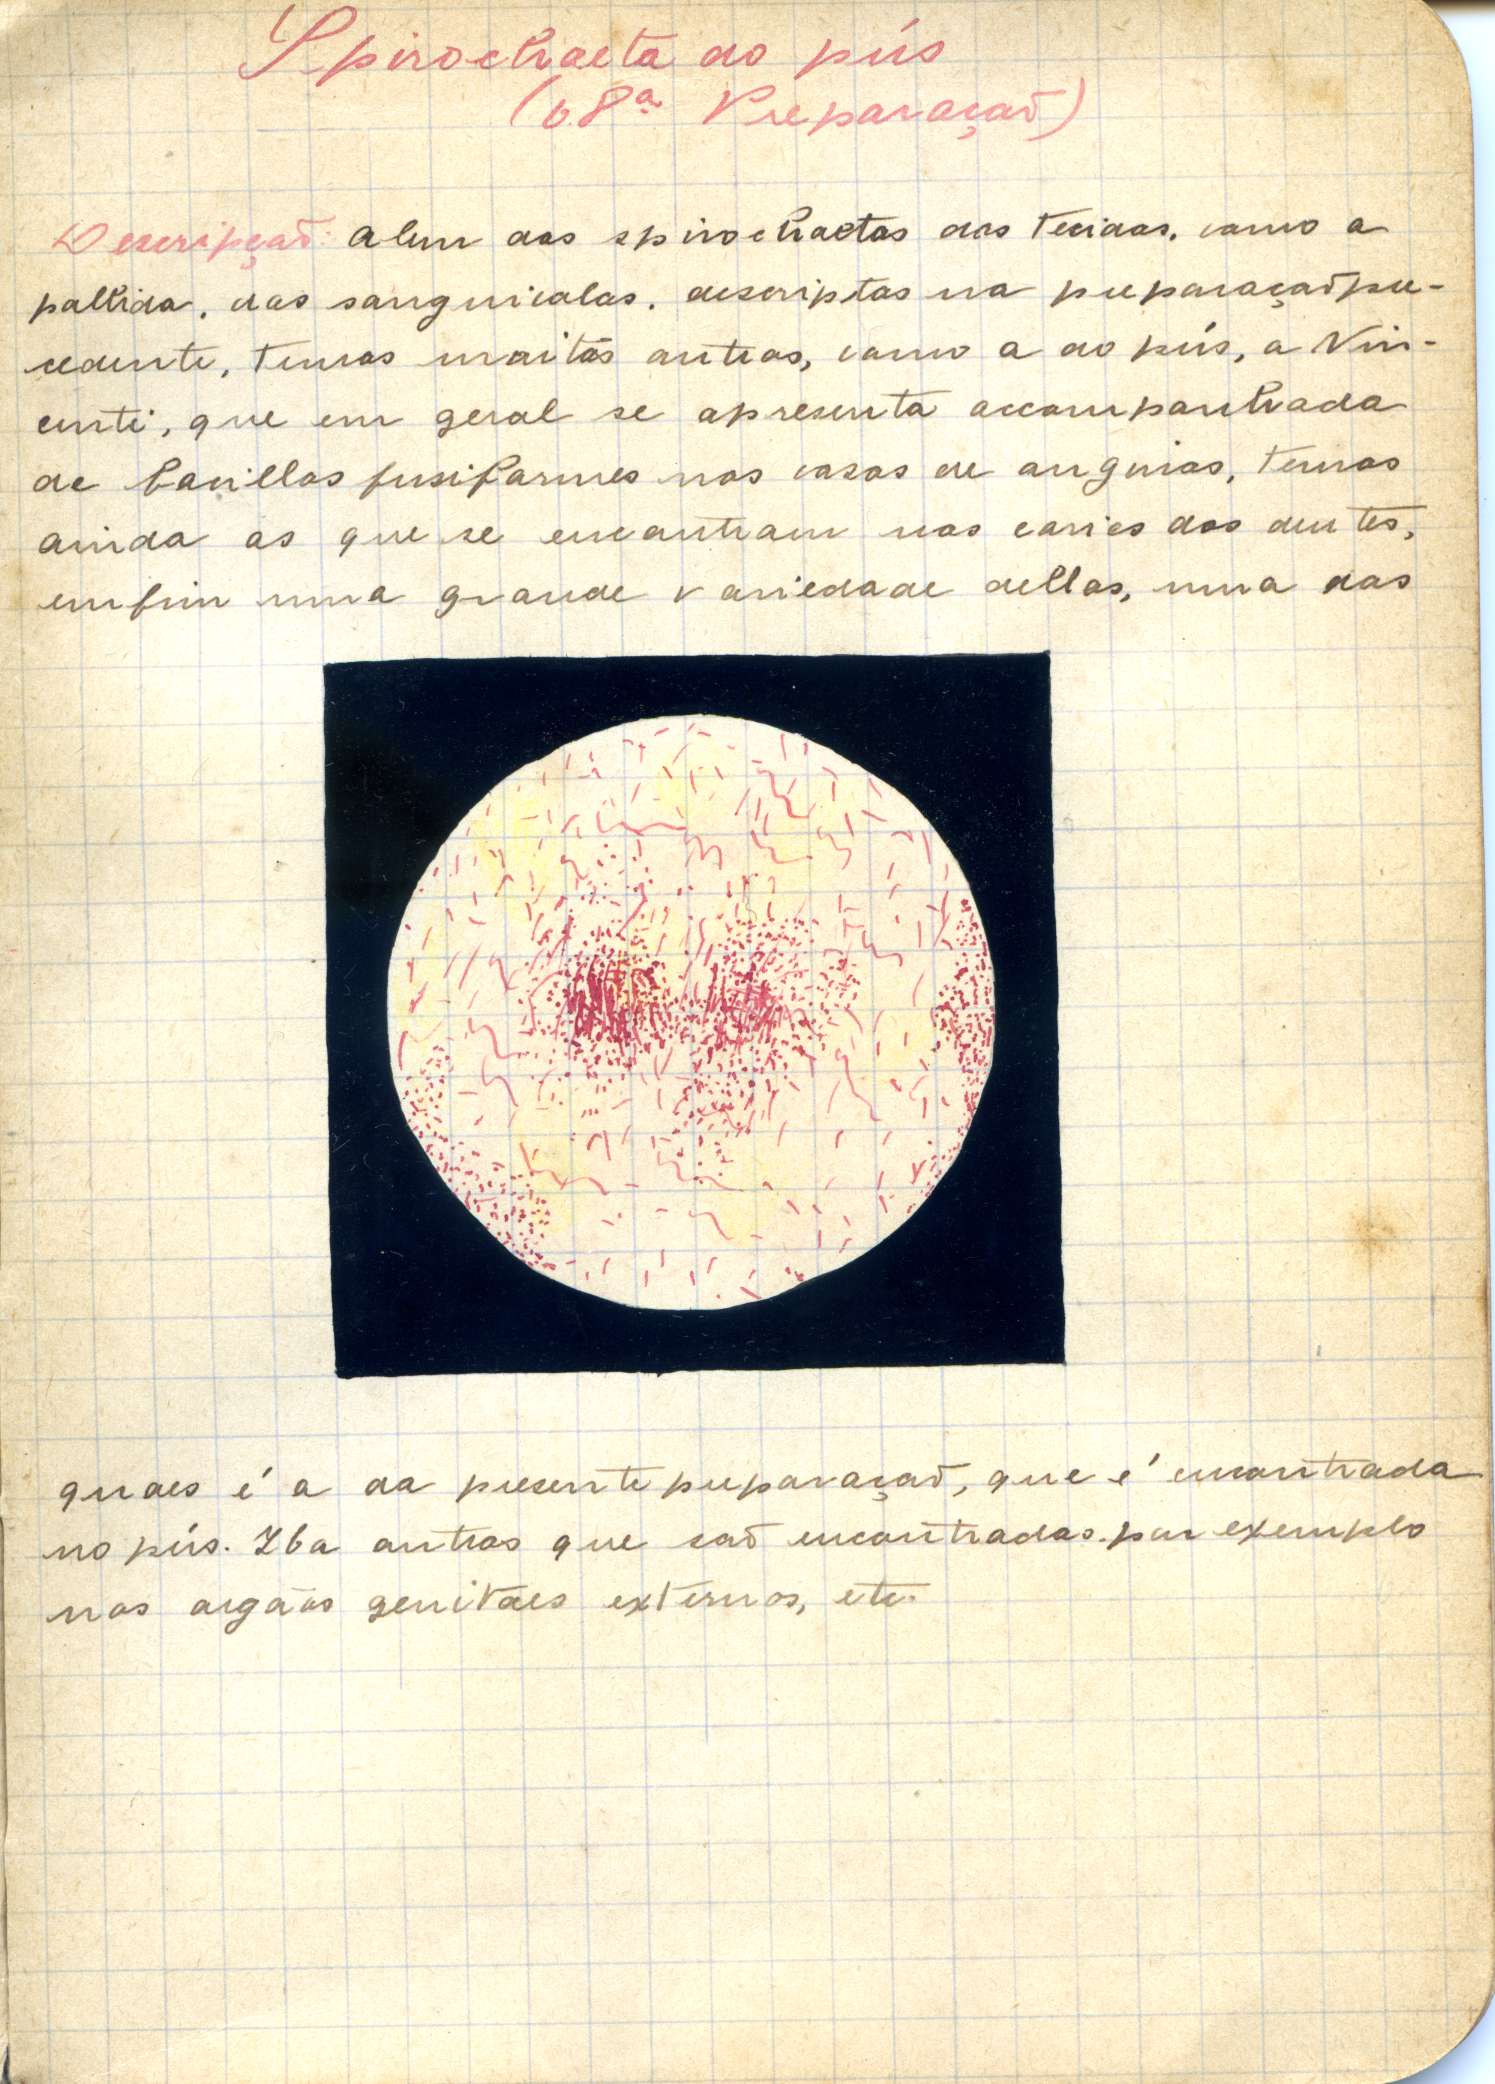 Spirochaeta do pús
(68ª Preparação)
Descripção: Alem das spirochaetas dos tecidos, como a
pallida, das sanguicolas, descriptas na preparação pre-
cedente, temos muitas outras, como a do pús, a Vin-
centi, que em geral se apresenta accompanhada
de bacillos fusiformes nos casos de anginas, temos
ainda as que se encontram nas caries dos dentes,
emfim uma grande variedade dellas, uma das
quaes é a da presente preparação, que é encontrada
no pús. Ha outras que são encontradas por exemplo
nos orgãos genitaes externos, etc.